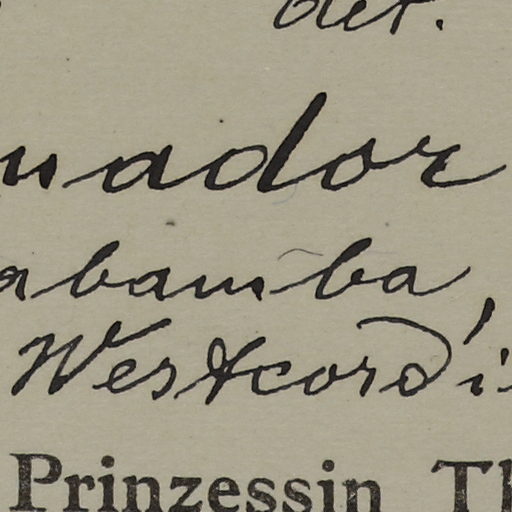 det.
uador
abamba,
Westcordi
Prinzessin Th